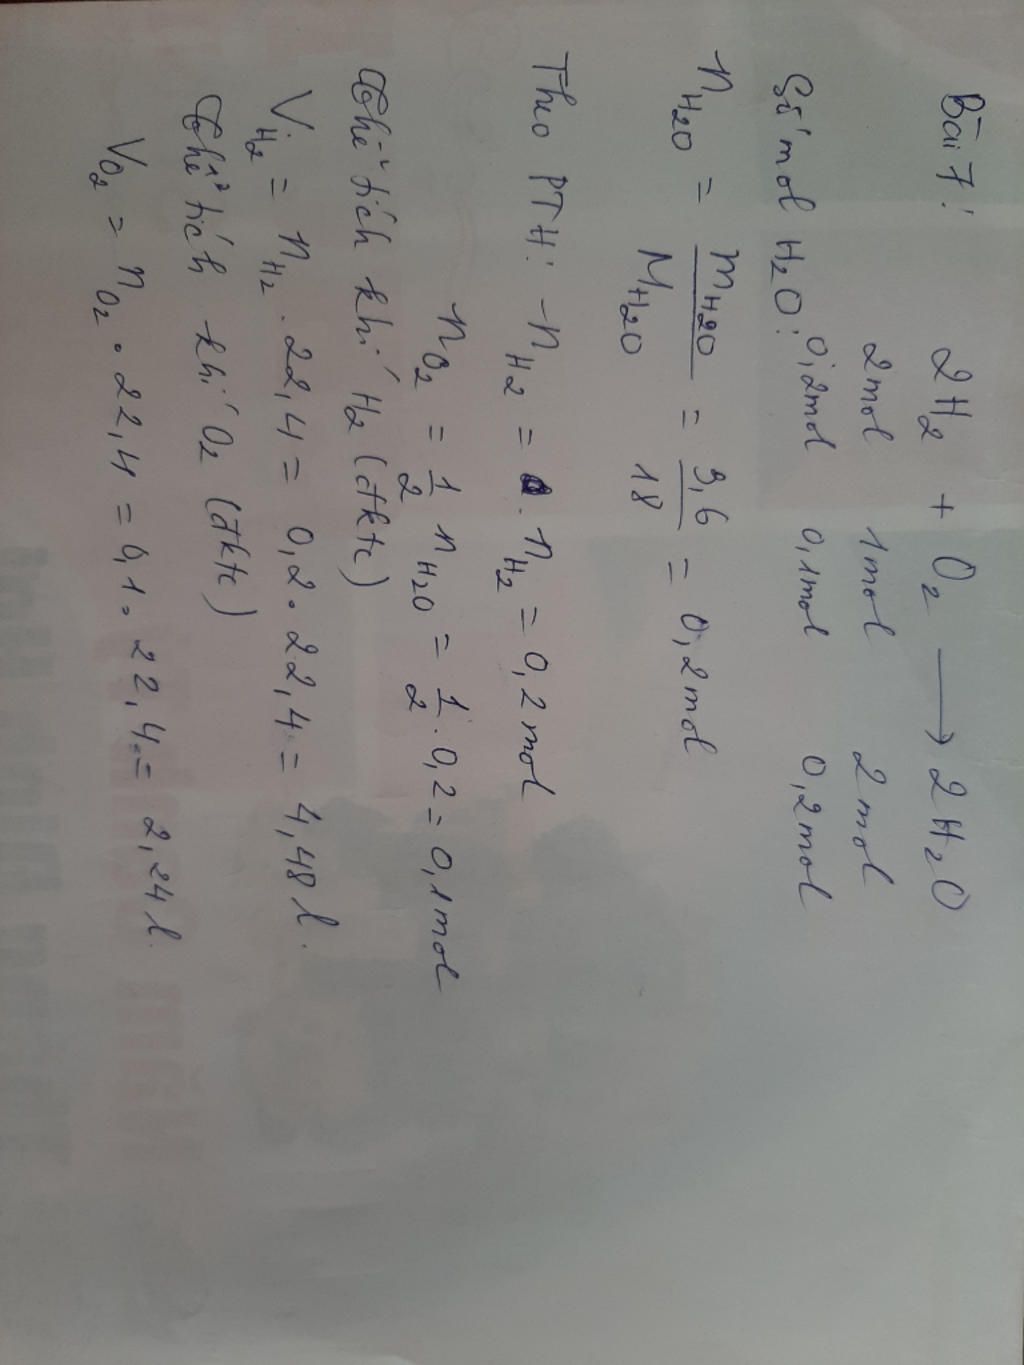 Bài 7: 2H₂ + O₂ → 2H₂O
2mol 1mol 2mol
Số mol H₂O: 0,2mol 0,1mol 0,2mol
n_H₂O = m_H₂O / M_H₂O = 3,6 / 18 = 0,2mol
Theo PTH: n_H₂ = n_H₂ = 0,2mol
n_O₂ = 1/2 n_H₂O = 1/2 . 0,2 = 0,1mol
Thể tích khí H₂ (đktc)
V_H₂ = n_H₂ . 22,4 = 0,2 . 22,4 = 4,48 l.
Thể tích khí O₂ (đktc)
V_O₂ = n_O₂ . 22,4 = 0,1 . 22,4 = 2,24 l.